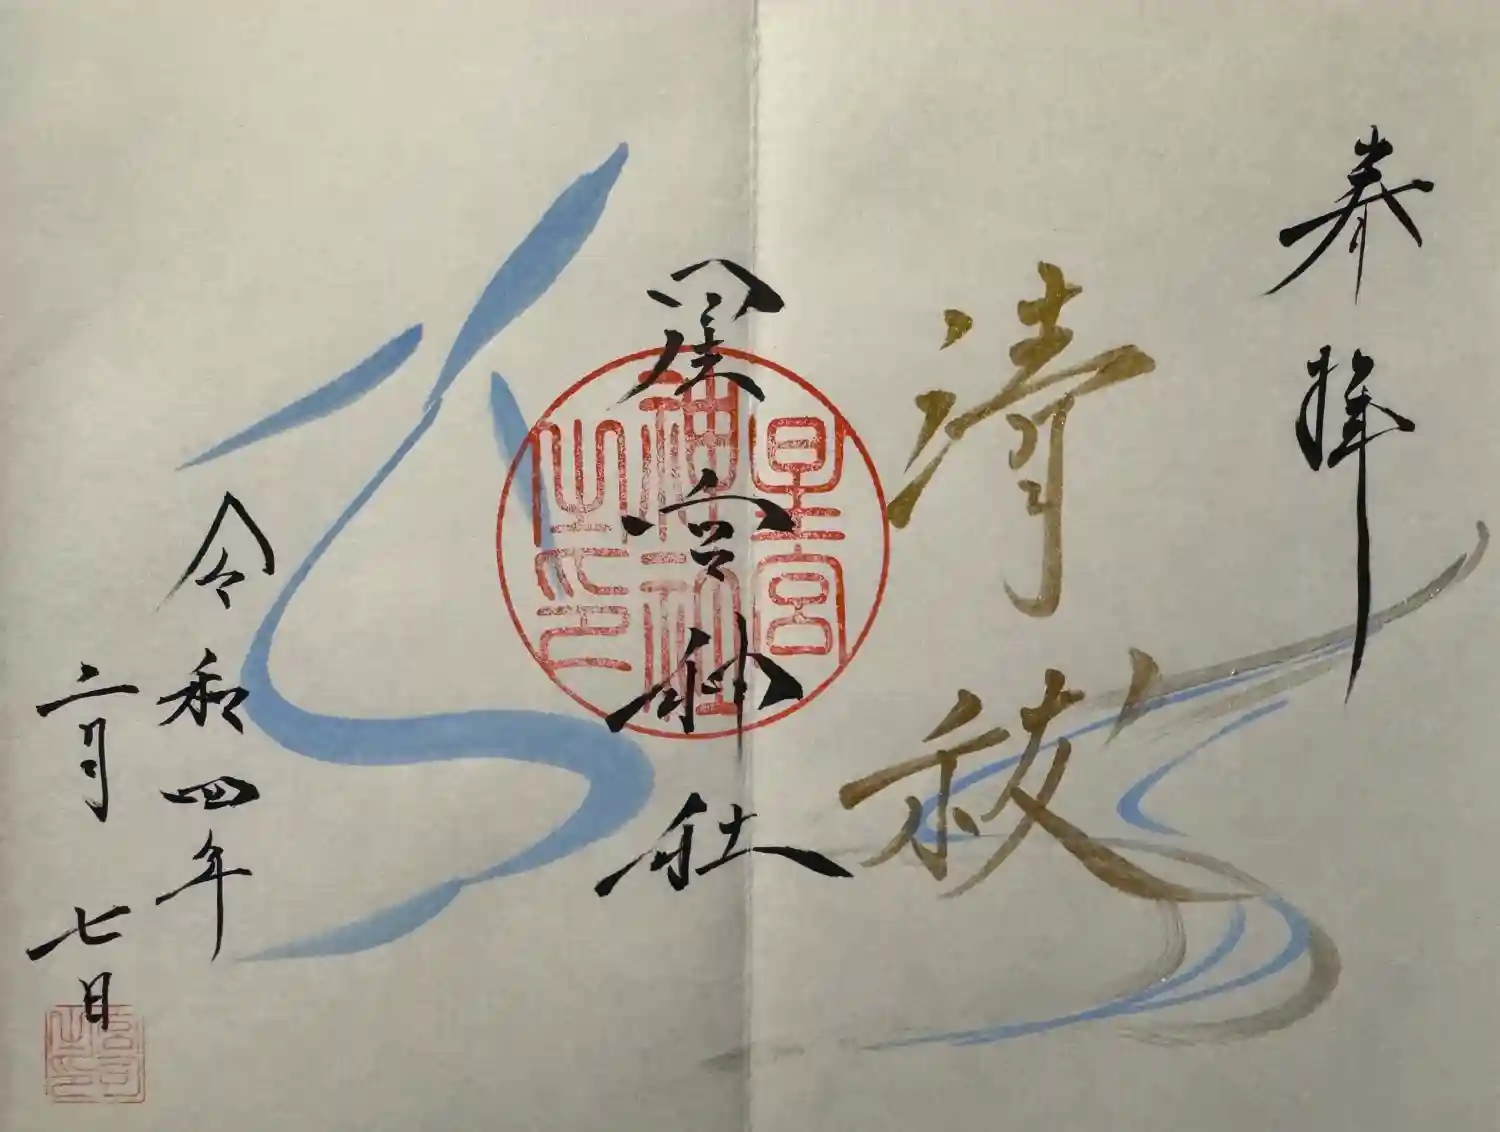 奉拝
清祓
星宮神社
星宮
神社
之印
令和四年
二月七日
宮司
之印